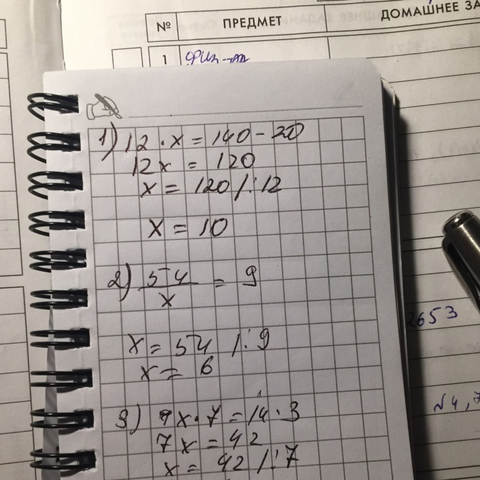 № ПРЕДМЕТ ДОМАШНЕЕ ЗА
1
1) 12 · x = 140 - 20
12x = 120
x = 120 /: 12
x = 10
2) 54/x = 9
x = 54 /: 9
x = 6
3) x · 7 = 14 · 3
7x = 42
x = 42 /: 7
2653
№4,7